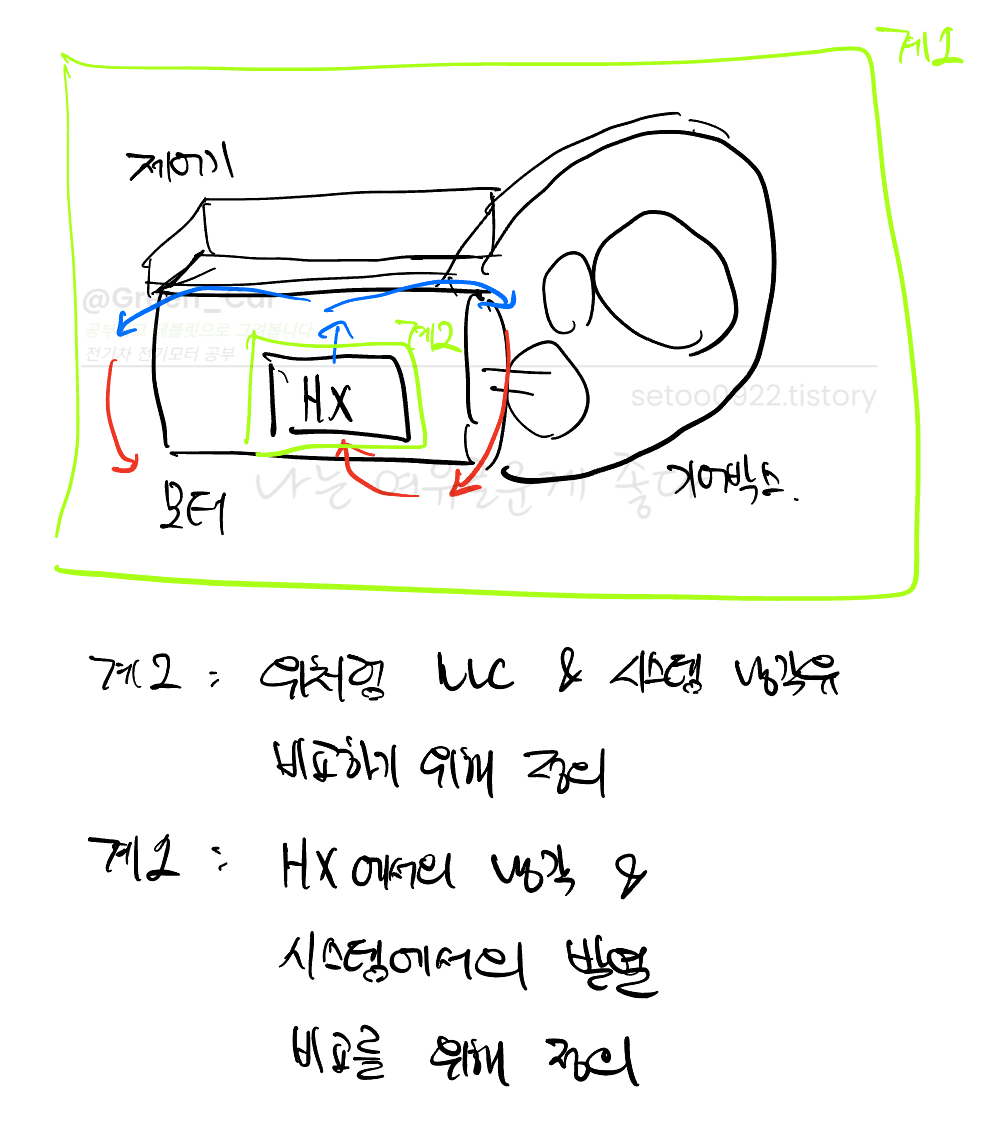 계1
제어기
@Green_Car
공부하고 태블릿으로 그려봅니다
전기차 전기모터 공부
계2
HX
setoo0922.tistory
나는 여유로운게 좋아
기어박스.
모터
계2 : 위처럼 LLC & 시스템 냉각유
비교하기 위해 정의
계1 : HX에서의 냉각 &
시스템에서의 발열
비교를 위해 정의